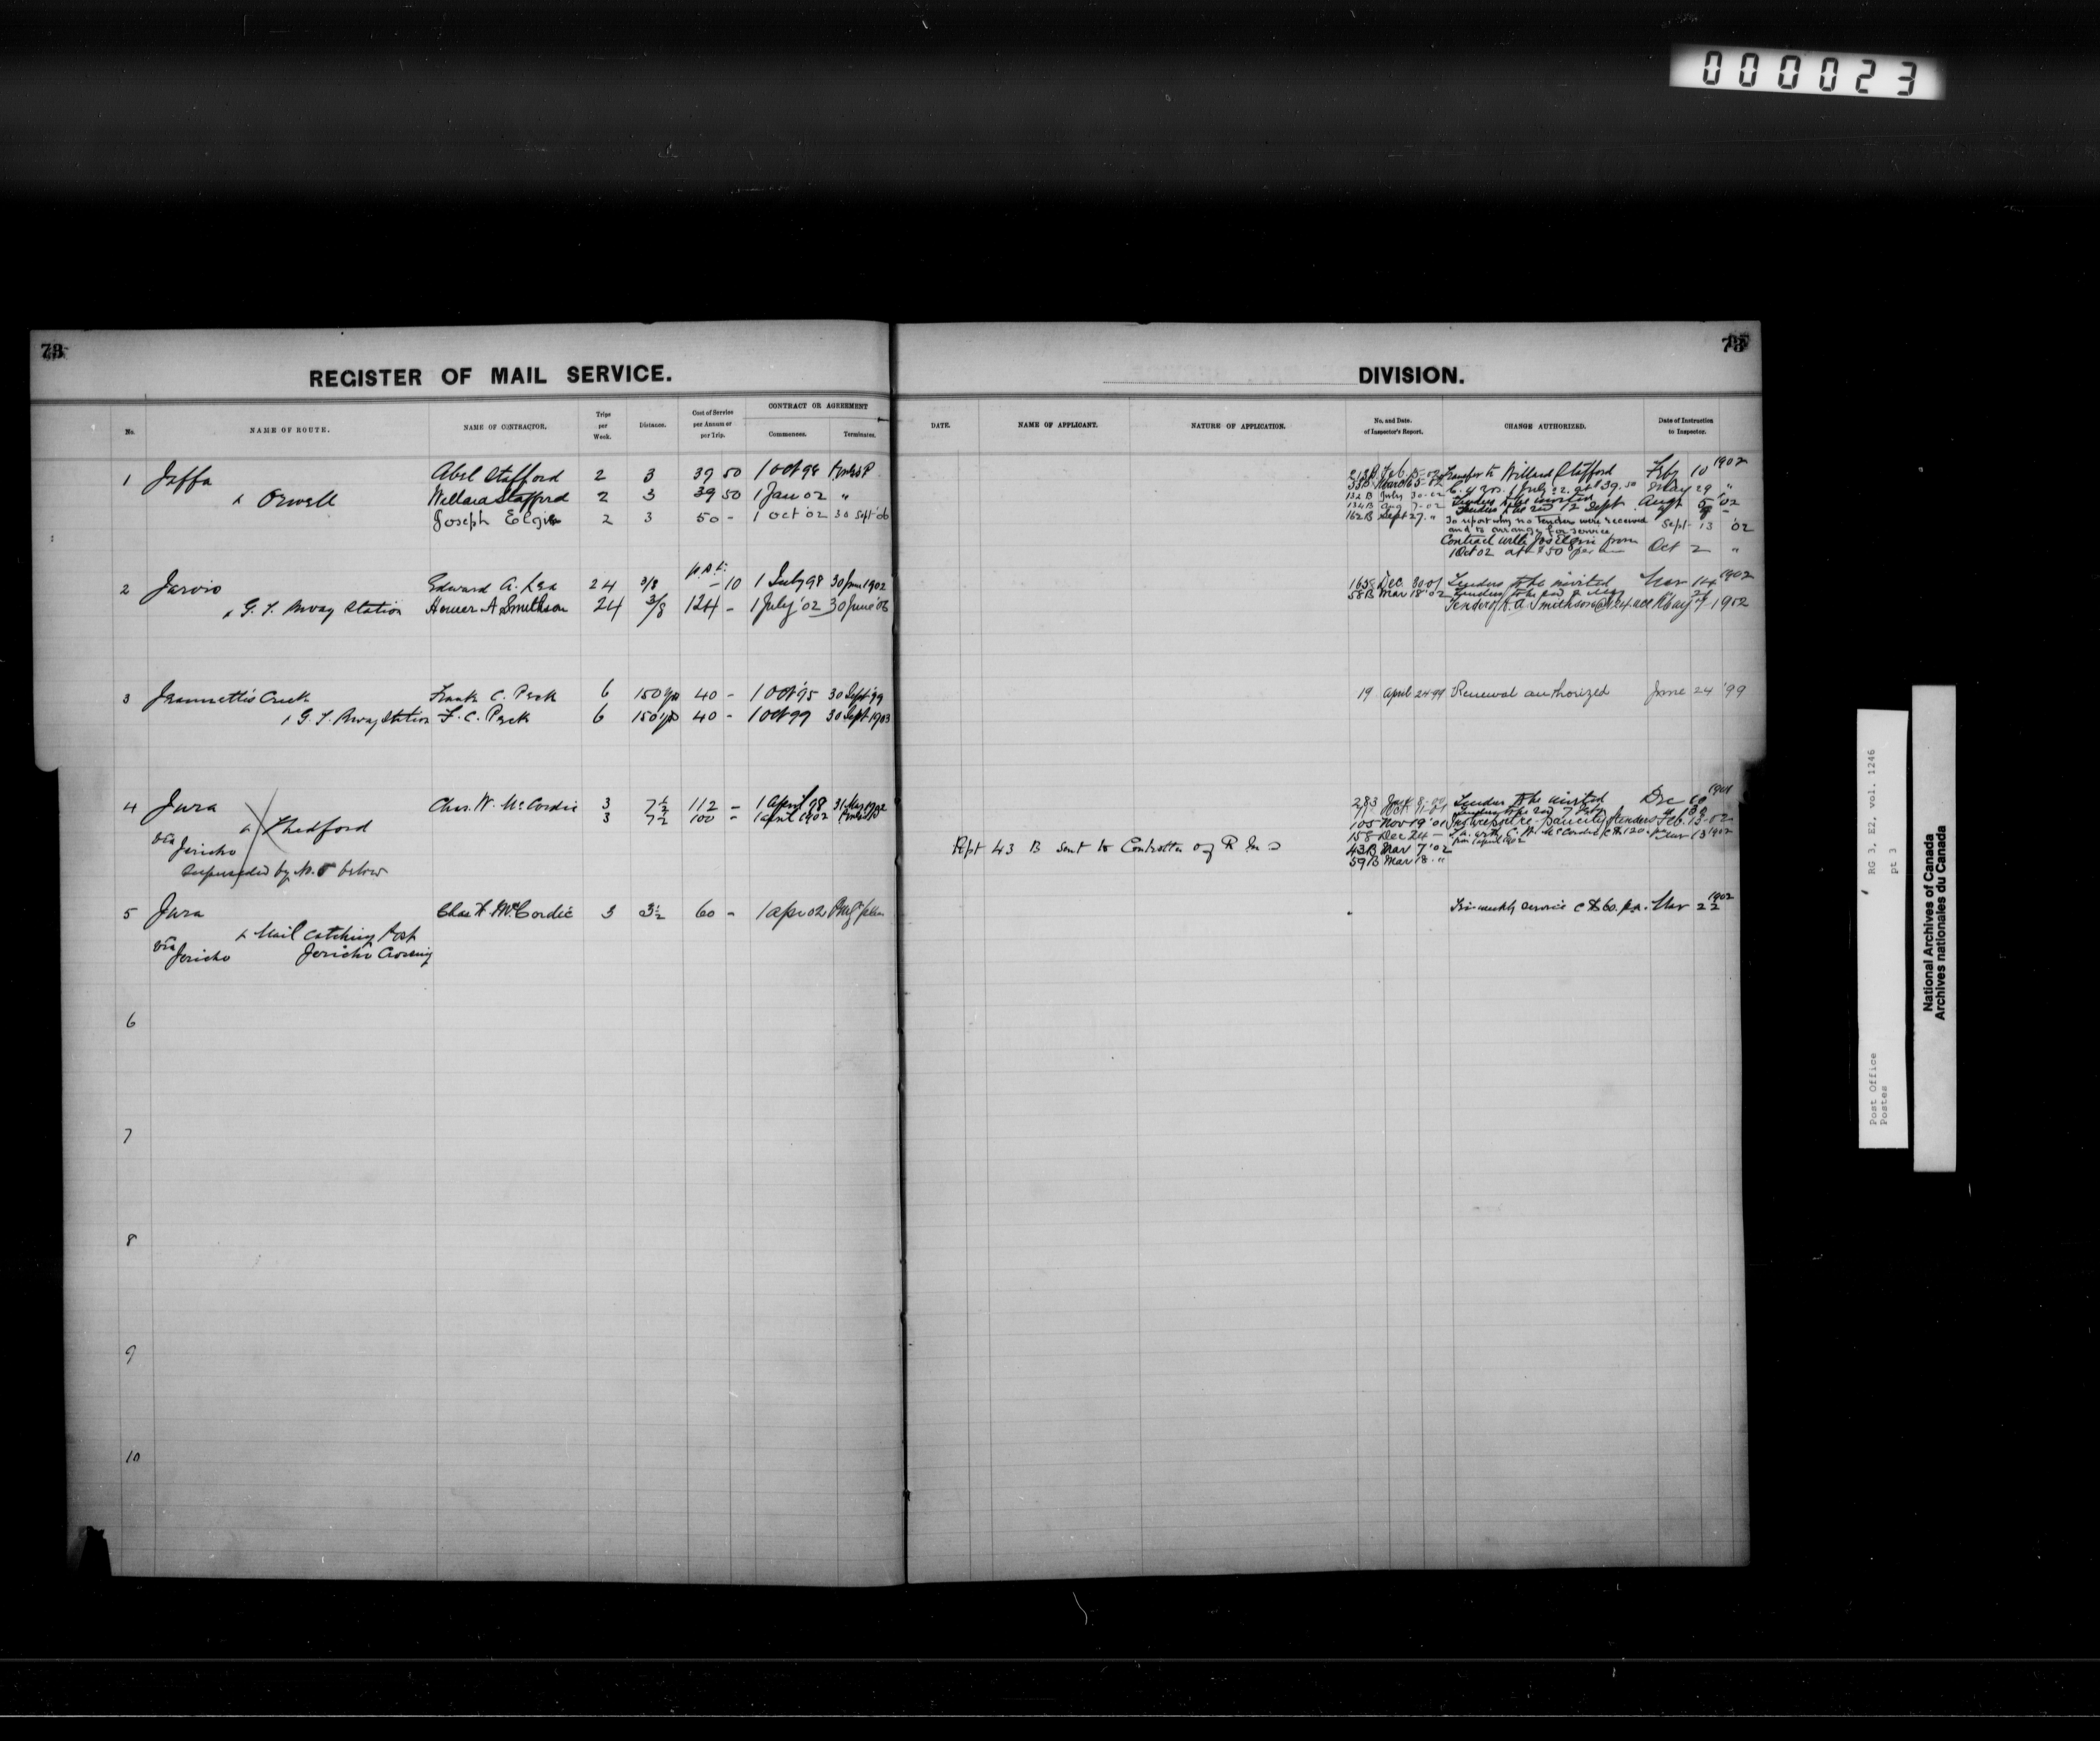 000023
73
REGISTER OF MAIL SERVICE.
No.
NAME OF ROUTE.
NAME OF CONTRACTOR.
Trips per Week.
Distance.
Cost of Service per Annum or per Trip.
CONTRACT OR AGREEMENT
Commences.
Terminates.
1 Jaffa Abel Stafford 2 3 39 50 1 Oct 98
& Orwell Willard Stafford 2 3 39 50 1 Jan 02 "
Joseph Elgie 2 3 50 - 1 Oct '02 30 Sept '06
2 Jarvis Edward A. Lea 24 3/8 - 10 1 July 98 30 June 1902
& G. T. Rway Station Homer A Smithson 24 3/8 124 - 1 July '02 30 June '06
3 Jeannette's Creek Frank C. Peck 6 150 yds 40 - 1 Oct '95 30 Sept 99
& G. T. Rway Station F. C. Peck 6 150 yds 40 - 1 Oct 99 30 Sept 1903
4 Jura Chas. W. McCordic 3 7½ 112 - 1 April 98 31 Mar 1902
& Thedford 3 7½ 100 - 1 April 1902
via Jericho
Superseded by No. 5 below
5 Jura Chas W McCordic 3 3½ 60 - 1 Apr 02
& Mail Catching Post
via Jericho Jericho Crossing
6
7
8
9
10
73
DIVISION.
DATE.
NAME OF APPLICANT.
NATURE OF APPLICATION.
No. and Date of Inspector's Report.
CHANGE AUTHORIZED.
Date of Instruction to Inspector.
Transfer to Willard Stafford Feby 10 1902
May 29 "
132 B July 30-02 Tenders to be invited Augt 5 '02
134 B Aug 7-02 Tenders to be recd 12 Sept
162 B Sept 27 " To report why no Tenders were received Sept 13 '02
and to arrange for service
Contract with Jos Elgie from
1 Oct 02 at $50 per an Oct 2 "
165 Dec 30 01 Tenders to be invited Mar 14 1902
58 B Mar 18 '02 Tenders to be recd
Tender of H. A. Smithson @ 124 acc May 7 1902
19 April 24 99 Renewal authorized June 24 '99
Tenders to be invited Dec 10 1901
105 Nov 19 '01 Feb. 13 - 02
158 Dec 24 - Mar 13 1902
from 1 April 1902
Rept 43 B sent to Controller of R M S 43 B Mar 7 '02
59 B Mar 18 "
Tri-weekly service @ $60. p.a. Mar 22 1902
Post Office RG 3, E2, vol. 1246
Postes pt 3
National Archives of Canada
Archives nationales du Canada